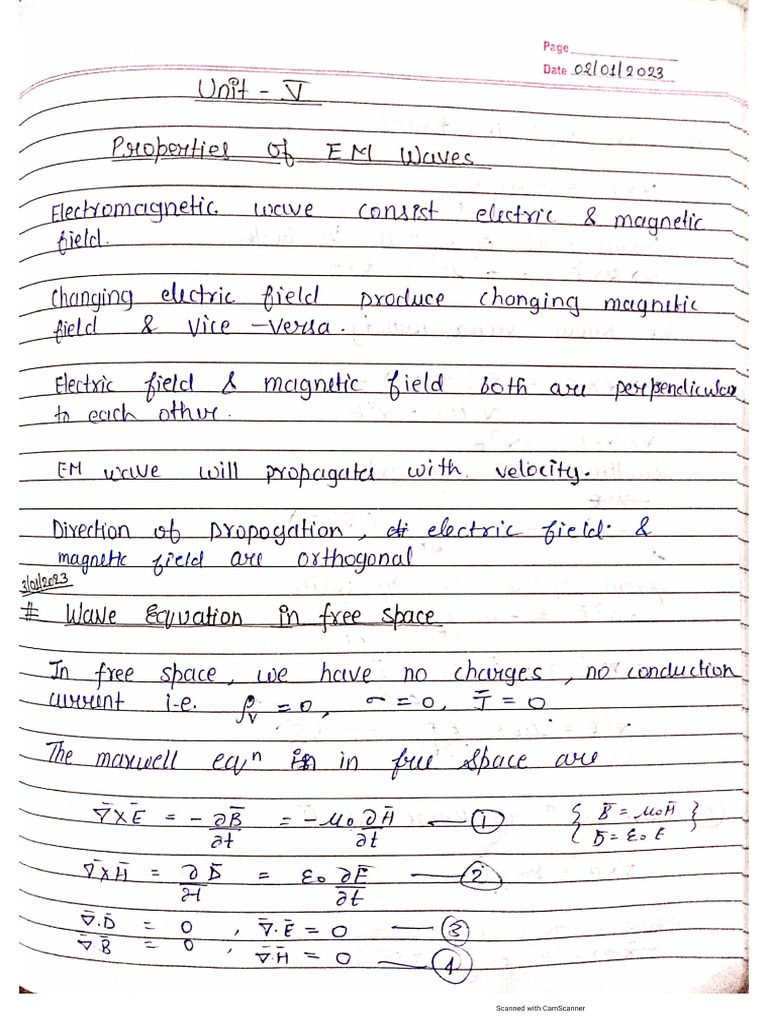 Page
Date 02/01/2023
Unit - V
Properties of EM Waves
Electromagnetic wave consist electric & magnetic
field.
Changing electric field produce changing magnetic
field & vice -versa.
Electric field & magnetic field both are perpendicular
to each other.
EM wave will propagates with velocity.
Direction of propogation, electric field. &
magnetic field are orthogonal
3/01/2023
# Wave Equation in free space
In free space, we have no charges, no conduction
current i.e. ρv = 0, σ = 0, J̄ = 0
The maxwell eqⁿ in free space are
∇̄×Ē = -∂B̄/∂t = -μ₀ ∂H̄/∂t — ① { B̄ = μ₀H̄ }
{ D̄ = ε₀ E
∇̄×H̄ = ∂D̄/∂t = ε₀ ∂Ē/∂t — ②
∇̄.D̄ = 0, ∇̄.Ē = 0 — ③
∇̄.B̄ = 0, ∇̄.H̄ = 0 — ④
Scanned with CamScanner